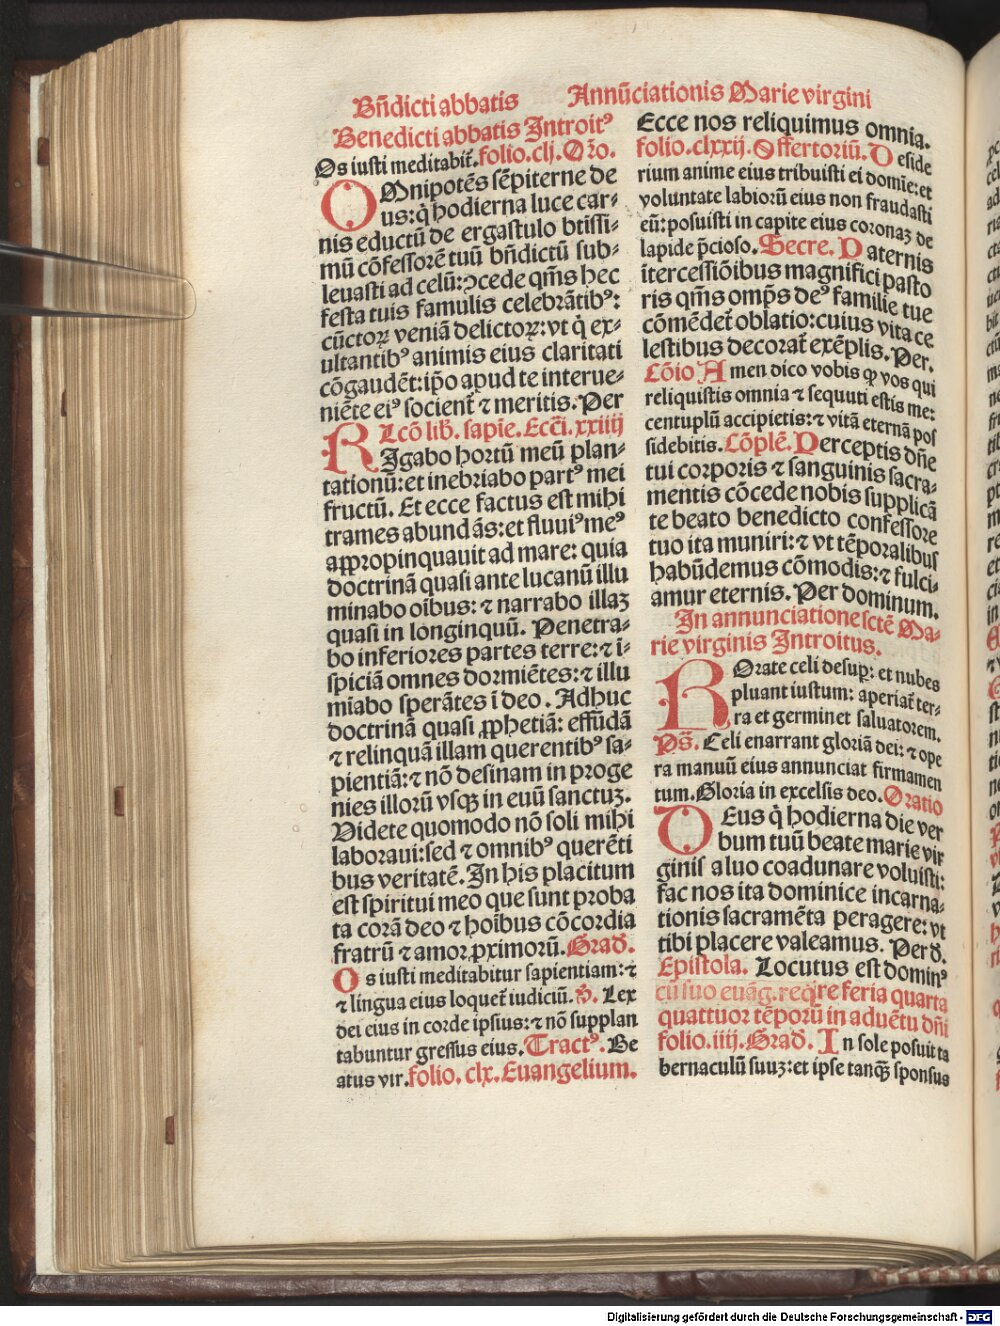 Bn̄dicti abbatis
Annūciationis Marie virgini
Benedicti abbatis Introitꝰ
Os iusti meditabit̄. folio. clj. Oŕo.
OMnipotēs sēpiterne de
us: q̇ hodierna luce car-
nis eductū de ergastulo btissi-
mū cōfessorē tuū bn̄dictū sub-
leuasti ad celū: ꝯcede qm̄s hec
festa tuis famulis celebrātibꝰ:
cūctoꝝ veniā delictoꝝ: vt q̇ ex-
ultantibꝰ animis eius claritati
cōgaudēt: ip̄o apud te interue-
niēte eiꝰ socient̄ ⁊ meritis. Per
Lcō lib̄. sapie. Ecci. xxiiij
RIgabo hortū meū plan-
tationū: et inebriabo partꝰ mei
fructū. Et ecce factus est mihi
trames abundās: et fluuiꝰ meꝰ
appropinquauit ad mare: quia
doctrinā quasi ante lucanū illu
minabo oībus: ⁊ narrabo illaꝫ
quasi in longinquū. Penetra-
bo inferiores partes terre: ⁊ i-
spiciā omnes dormiētes: ⁊ illu
mīabo sperātes ī deo. Adhuc
doctrinā quasi ꝓphetiā: effūdā
⁊ relinquā illam querentibꝰ sa-
pientiā: ⁊ nō desinam in proge
nies illorū vsqꝫ in euū sanctuꝫ.
Videte quomodo nō soli mihi
laboraui: sed ⁊ omnibꝰ querēti
bus veritatē. In his placitum
est spiritui meo que sunt proba
ta corā deo ⁊ hoībus cōcordia
fratrū ⁊ amor ꝓximorū. Grad̄.
Os iusti meditabitur sapientiam: ⁊
⁊ lingua eius loquet̄ iudiciū. V̄. Lex
dei eius in corde ipsius: ⁊ nō supplan
tabuntur gressus eius. Tractꝰ. Be
atus vir. folio. clx. Euangelium.
Ecce nos reliquimus omnia.
folio. clxxij. Offertoriū. Deside
rium anime eius tribuisti ei domīe: et
voluntate labiorū eius non fraudasti
eū: posuisti in capite eius coronaꝫ de
lapide p̄cioso. Secre. Paternis
ītercessiōibus magnifici pasto
ris qm̄s omp̄s deꝰ familie tue
cōmēdet̄ oblatio: cuius vita ce
lestibus decorat̄ exēplis. Per.
Cōio Amen dico vobis ꝙ vos qui
reliquistis omnia ⁊ sequuti estis me:
centuplū accipietis: ⁊ vitā eternā pos
sidebitis. Cōplē. Perceptis dn̄e
tui corporis ⁊ sanguinis sacra-
mentis cōcede nobis supplicā
te beato benedicto confessore
tuo ita muniri: ⁊ vt tēporalibus
habūdemus cōmodis: ⁊ fulci-
amur eternis. Per dominum.
In annunciatione sctē Ma-
rie virginis Introitus.
ROrate celi desuꝑ: et nubes
pluant iustum: aperiat̄ ter-
ra et germinet saluatorem.
Ps̄. Celi enarrant gloriā dei: ⁊ ope
ra manuū eius annunciat firmamen
tum. Gloria in excelsis deo. Oratio
DEus q̇ hodierna die ver
bum tuū beate marie vir
ginis aluo coadunare voluisti:
fac nos ita dominice incarna-
tionis sacramēta peragere: vt
tibi placere valeamus. Per d̄.
Epistola. Locutus est dominꝰ
cū suo euāg. req̇re feria quarta
quattuor tēporū in aduētu dn̄i
folio. iiij. Grad̄. In sole posuit ta
bernaculū suuꝫ: et ipse tanqꝫ sponsus
Digitalisierung gefördert durch die Deutsche Forschungsgemeinschaft - DFG